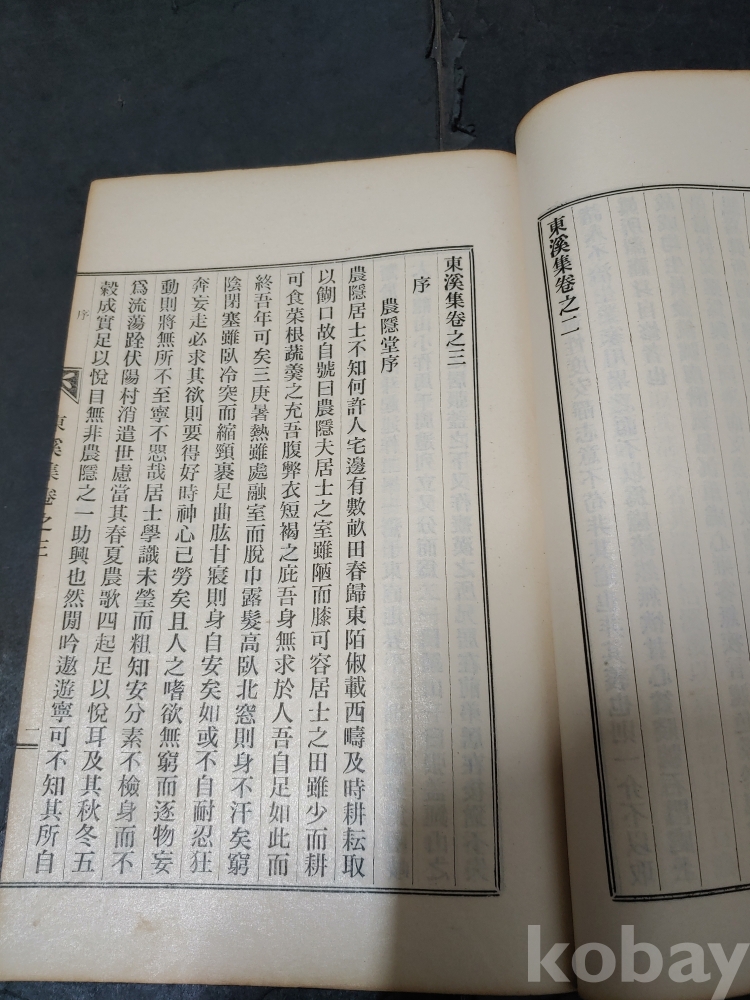 東溪集卷之二
東溪集卷之三
序
農隱堂序
農隱居士不知何許人宅邊有數畝田春歸東陌俶載西疇及時耕耘取
以餬口故自號曰農隱夫居士之室雖陋而膝可容居士之田雖少而耕
可食菜根蔬羹之充吾腹弊衣短褐之庇吾身無求於人吾自足如此而
終吾年可矣三庚暑熱雖處融室而脫巾露髮高臥北窓則身不汗矣窮
陰閉塞雖臥冷突而縮頸裹足曲肱甘寢則身自安矣如或不自耐忍狂
奔妄走必求其欲則要得好時神心已勞矣且人之嗜欲無窮而逐物妄
動則將無所不至寧不思哉居士學識未瑩而粗知安分素不檢身而不
爲流蕩跧伏陽村消遣世慮當其春夏農歌四起足以悅耳及其秋冬五
穀成實足以悅目無非農隱之一助興也然閒吟遨遊寧可不知其所自
序
東溪集卷之三
一
kobay